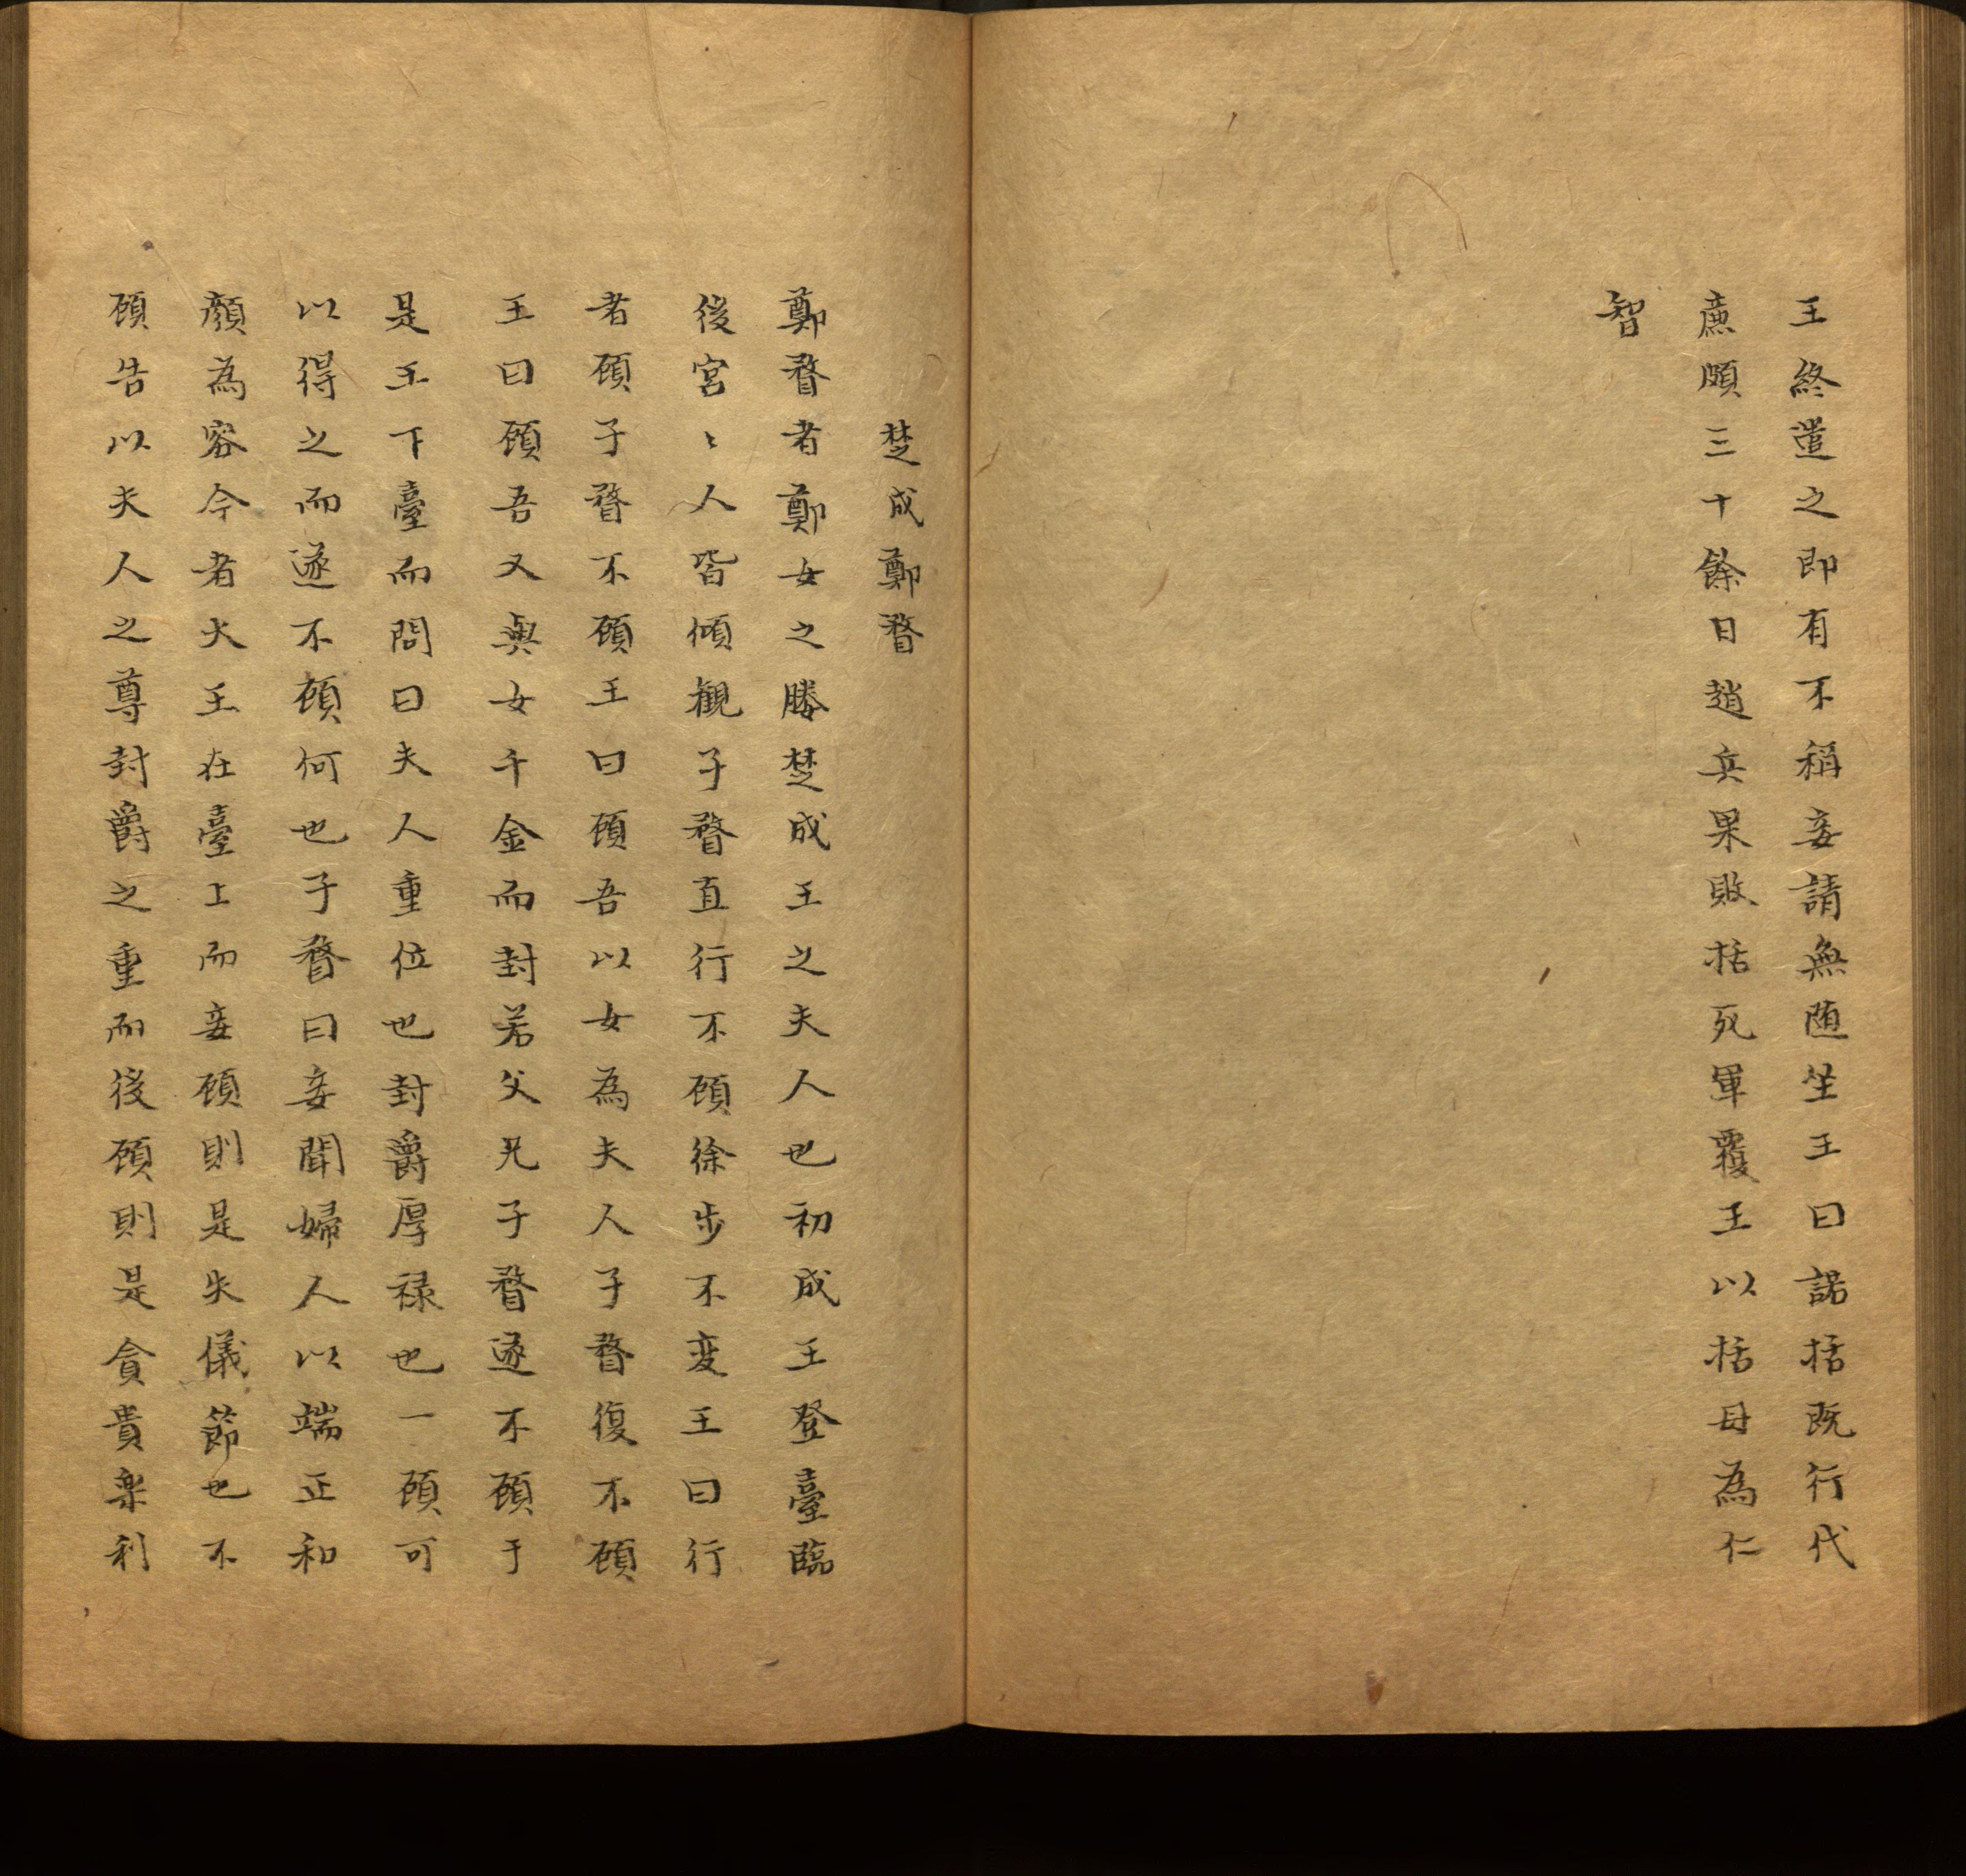 王終遣之即有不稱妾請無随坐王曰諾括既行代
廉頗三十餘日趙兵果敗括死軍覆王以括母為仁
智
楚成鄭瞀
鄭瞀者鄭女之媵楚成王之夫人也初成王登臺臨
後宮〻人皆傾観子瞀直行不顧徐步不変王曰行
者顧子瞀不顧王曰顧吾以女為夫人子瞀復不顧
王曰顧吾又與女千金而封若父兄子瞀遂不顧于
是王下臺而問曰夫人重位也封爵厚禄也一顧可
以得之而遂不顧何也子瞀曰妾聞婦人以端正和
顔為容今者大王在臺上而妾顧則是失儀節也不
顧告以夫人之尊封爵之重而後顧則是貪貴楽利